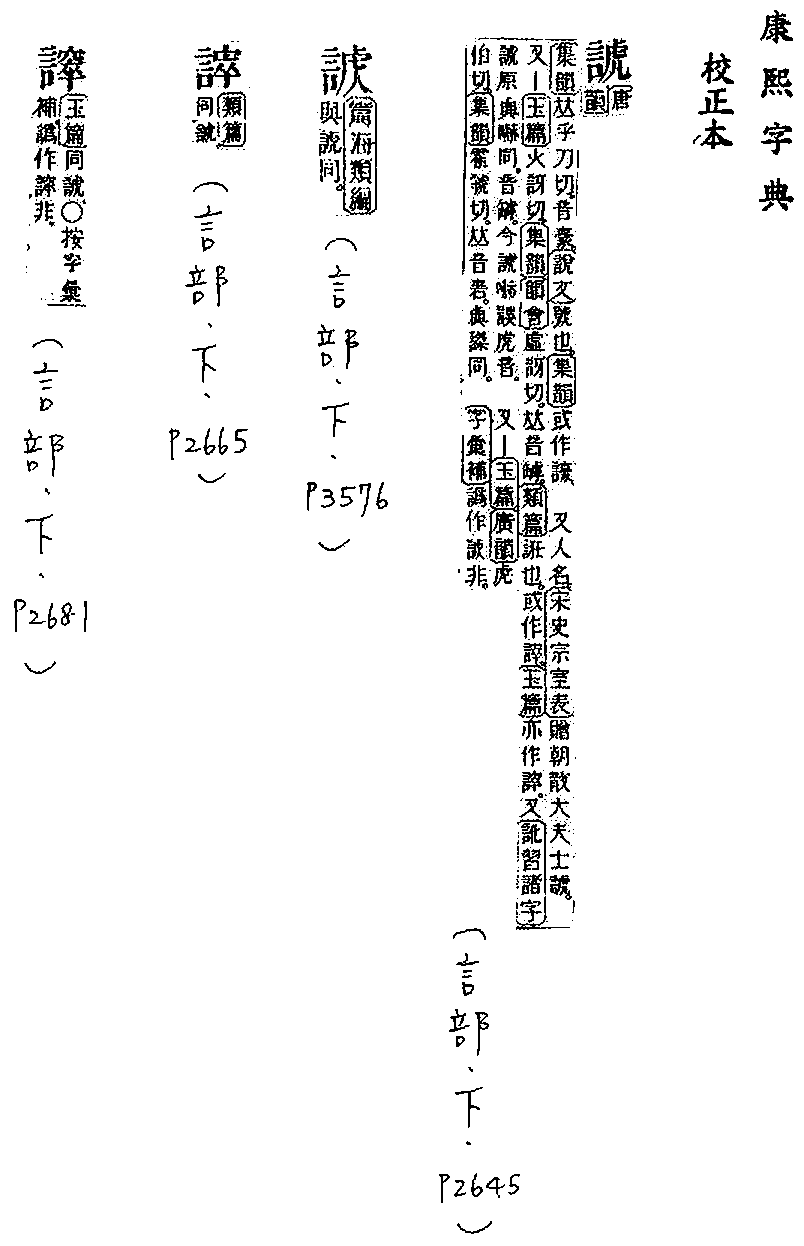 康熙字典
校正本
諕唐韻
集韻𠀤乎刀切。音豪。說文號也。集韻或作譹 又人名。宋史宗室表贈朝散大夫士諕。
又丨玉篇火訝切。集韻韻會虛訝切。𠀤音罅。類篇誑也。或作 玉篇亦作 又訛習諸字
諕原與嚇同。音罅。今諕嚇誤虎音。 又丨玉篇廣韻虎
伯切。集韻霍虢切。𠀤音砉。與謋同。 字彙補譌作 非。
篇海類編
與諕同。
(言部、下、P3576)
類篇
同諕
(言部、下、P2665)
玉篇同諕〇按字彙
補譌作 非。
(言部、下、P2681)
(言部、下、P2645)